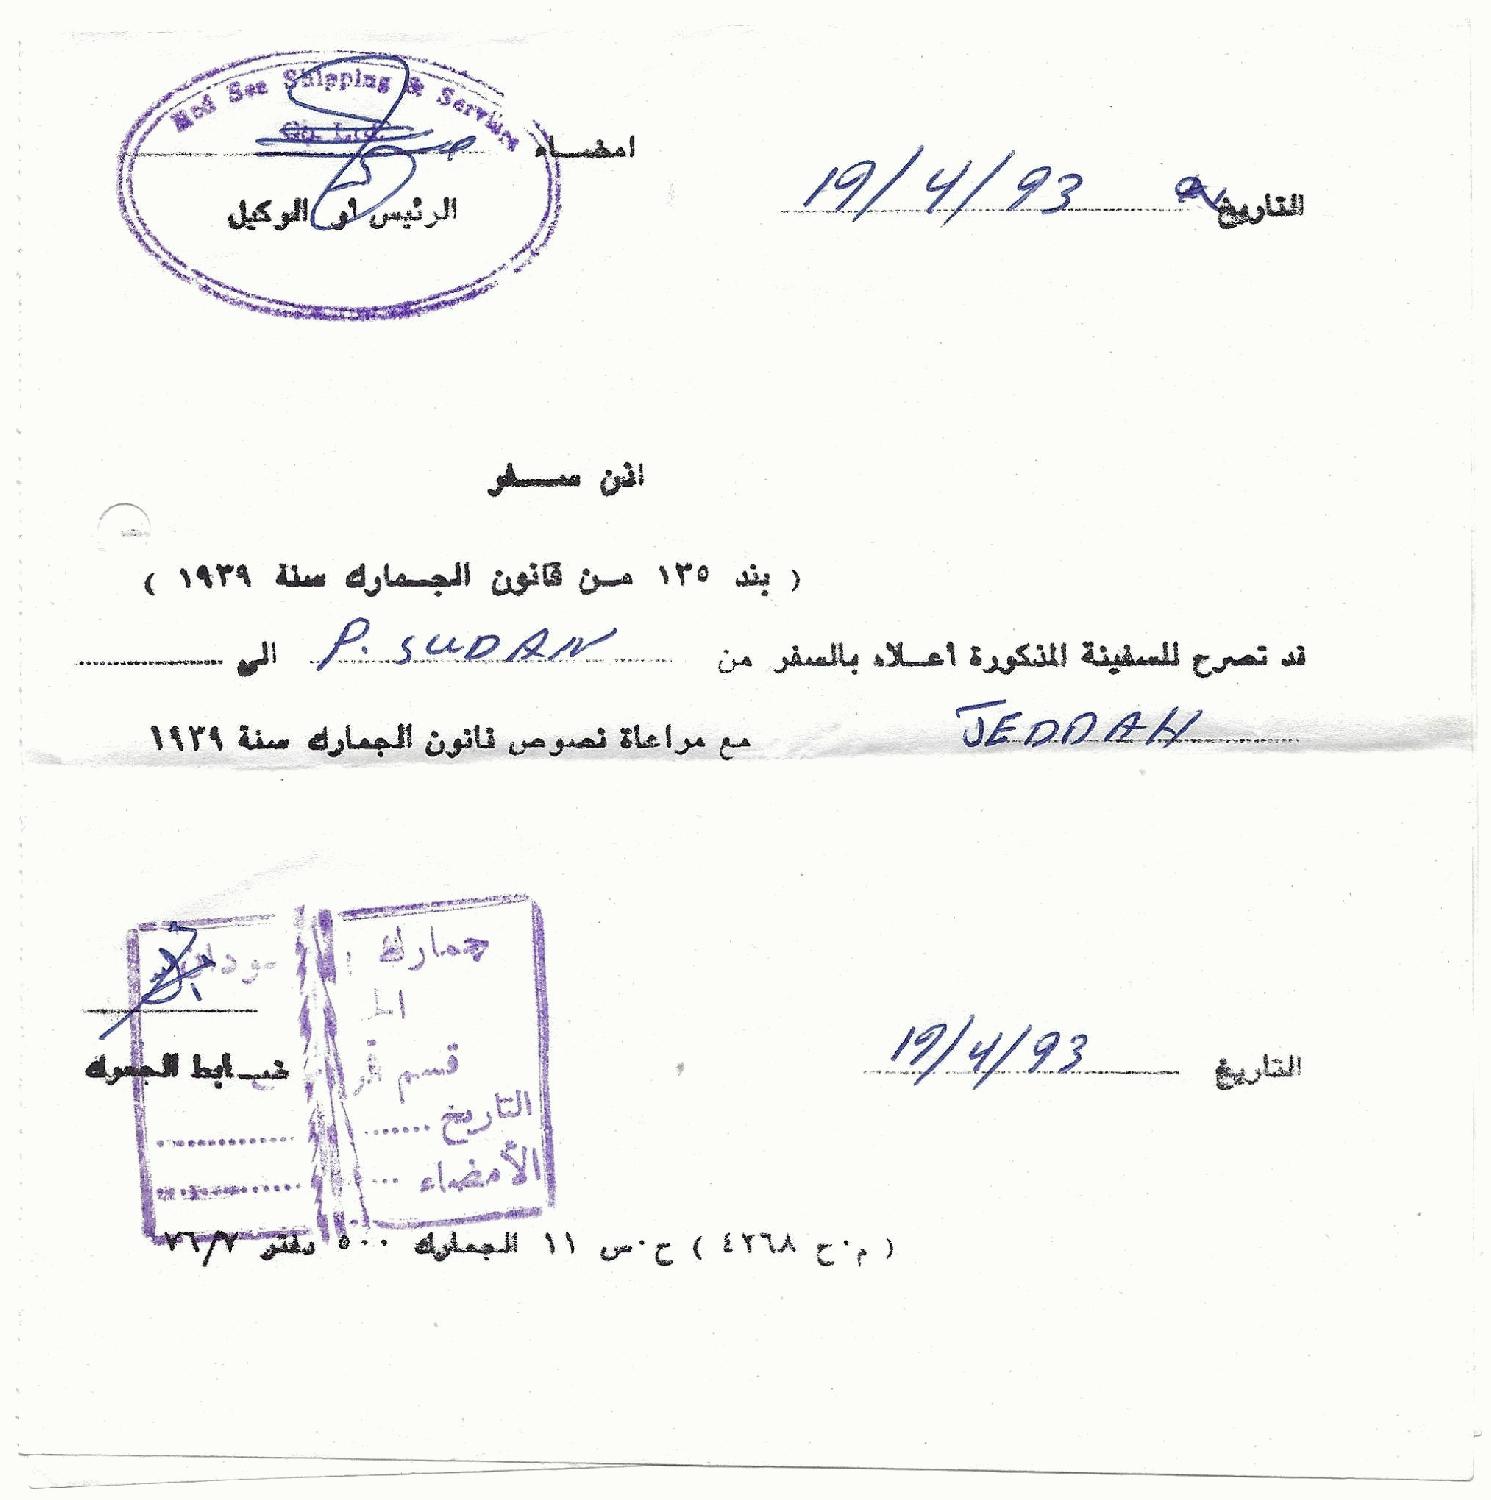 Red Sea Shipping & Services
Co. Ltd.
التاريخ 19/4/93 امضــاء
الرئيس أو الوكيل
اذن ســفر
( بند ١٣٥ مـن قانون الجـمارك سنة ١٩٣٩ )
قد تصرح للسفينة المذكورة أعـلاه بالسفر من P. SUDAN الى
JEDDAH مع مراعاة نصوص قانون الجمارك سنة ١٩٣٩
جمارك
التاريخ 19/4/93
ضـابط الجمرك
قسم
التاريخ
الأمضاء
( م٠ح ٤٢٦٨ ) ح٠س ١١ الجمارك ٥٠٠ دفتر ٧٦/٧